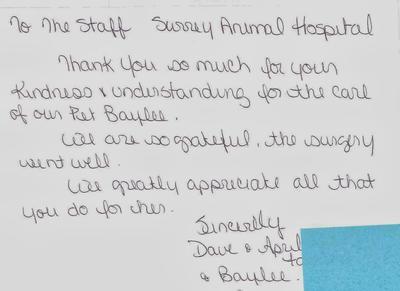 To The Staff Surrey Animal Hospital
Thank you so much for your
Kindness & understanding for the care
of our Pet Baylee.
We are so grateful, the surgery
went well.
We greatly appreciate all that
you do for her.
Sincerily
Dave & April
& Baylee.